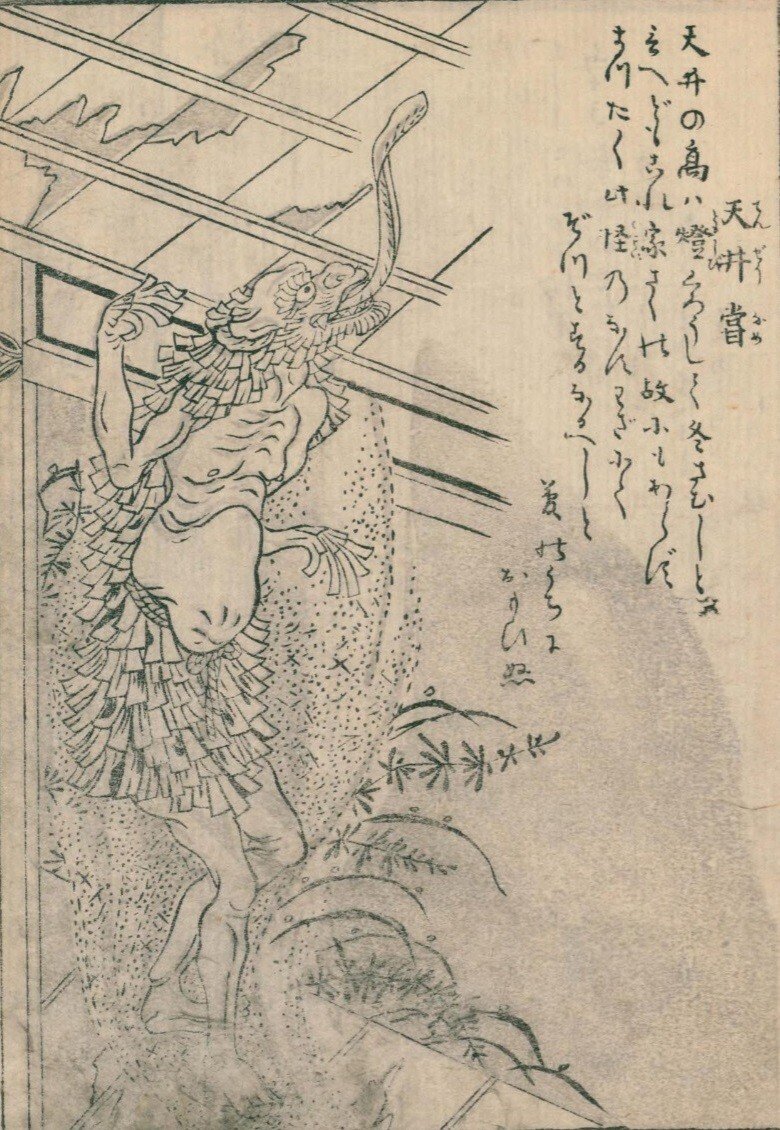 天井嘗
天井の高ハ燈くらうして冬さむしと
言へどもこれ家さくの故にもあらず
まつたく此怪のなすわざにて
ぞつとするなるべしと
夢のうちに
おもひぬ